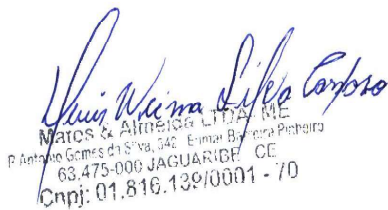 Weima Silva Cardoso
Matos & Almeida LTDA. ME
Antonio Gomes da Silva, 342 Barreira Pinheiro
63.475-000 JAGUARIBE CE
Cnpj: 01.816.139/0001 - 70